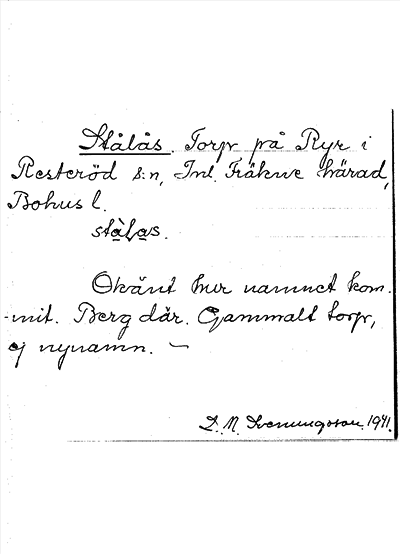 Stålås. Torp på Ryr i
Resteröd s:n, Inl. Fräkne härad,
Bohus l.
stålas.
Okänt hur namnet kom-
-mit. Berg där. Gammalt torp,
ej nynamn. –
D. M. Svenungsson. 1941.